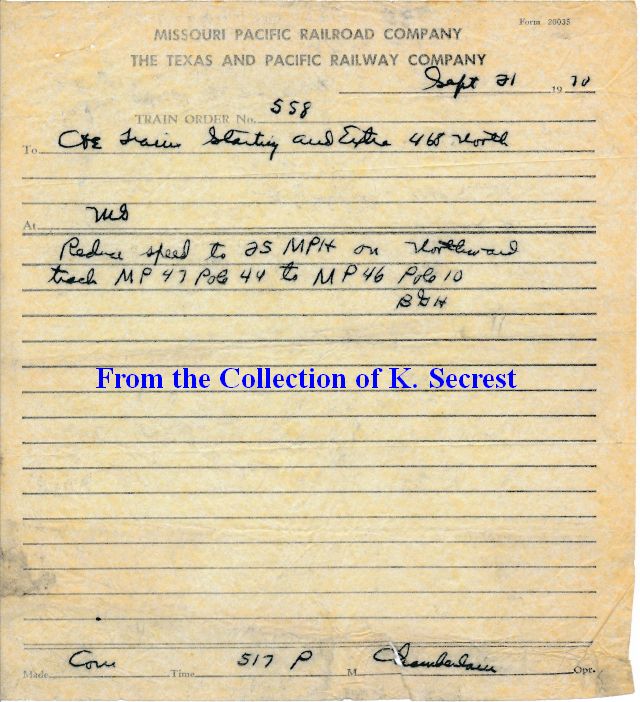 Form 20035
MISSOURI PACIFIC RAILROAD COMPANY
THE TEXAS AND PACIFIC RAILWAY COMPANY
Sept 21 1970
TRAIN ORDER No. 558
To C&E Trains Starting and Extra 468 North
At MD
Reduce speed to 25 MPH on Northward
track MP 47 Pole 44 to MP 46 Pole 10
BGH
From the Collection of K. Secrest
Made Com Time 517 P M Chamberlain Opr.